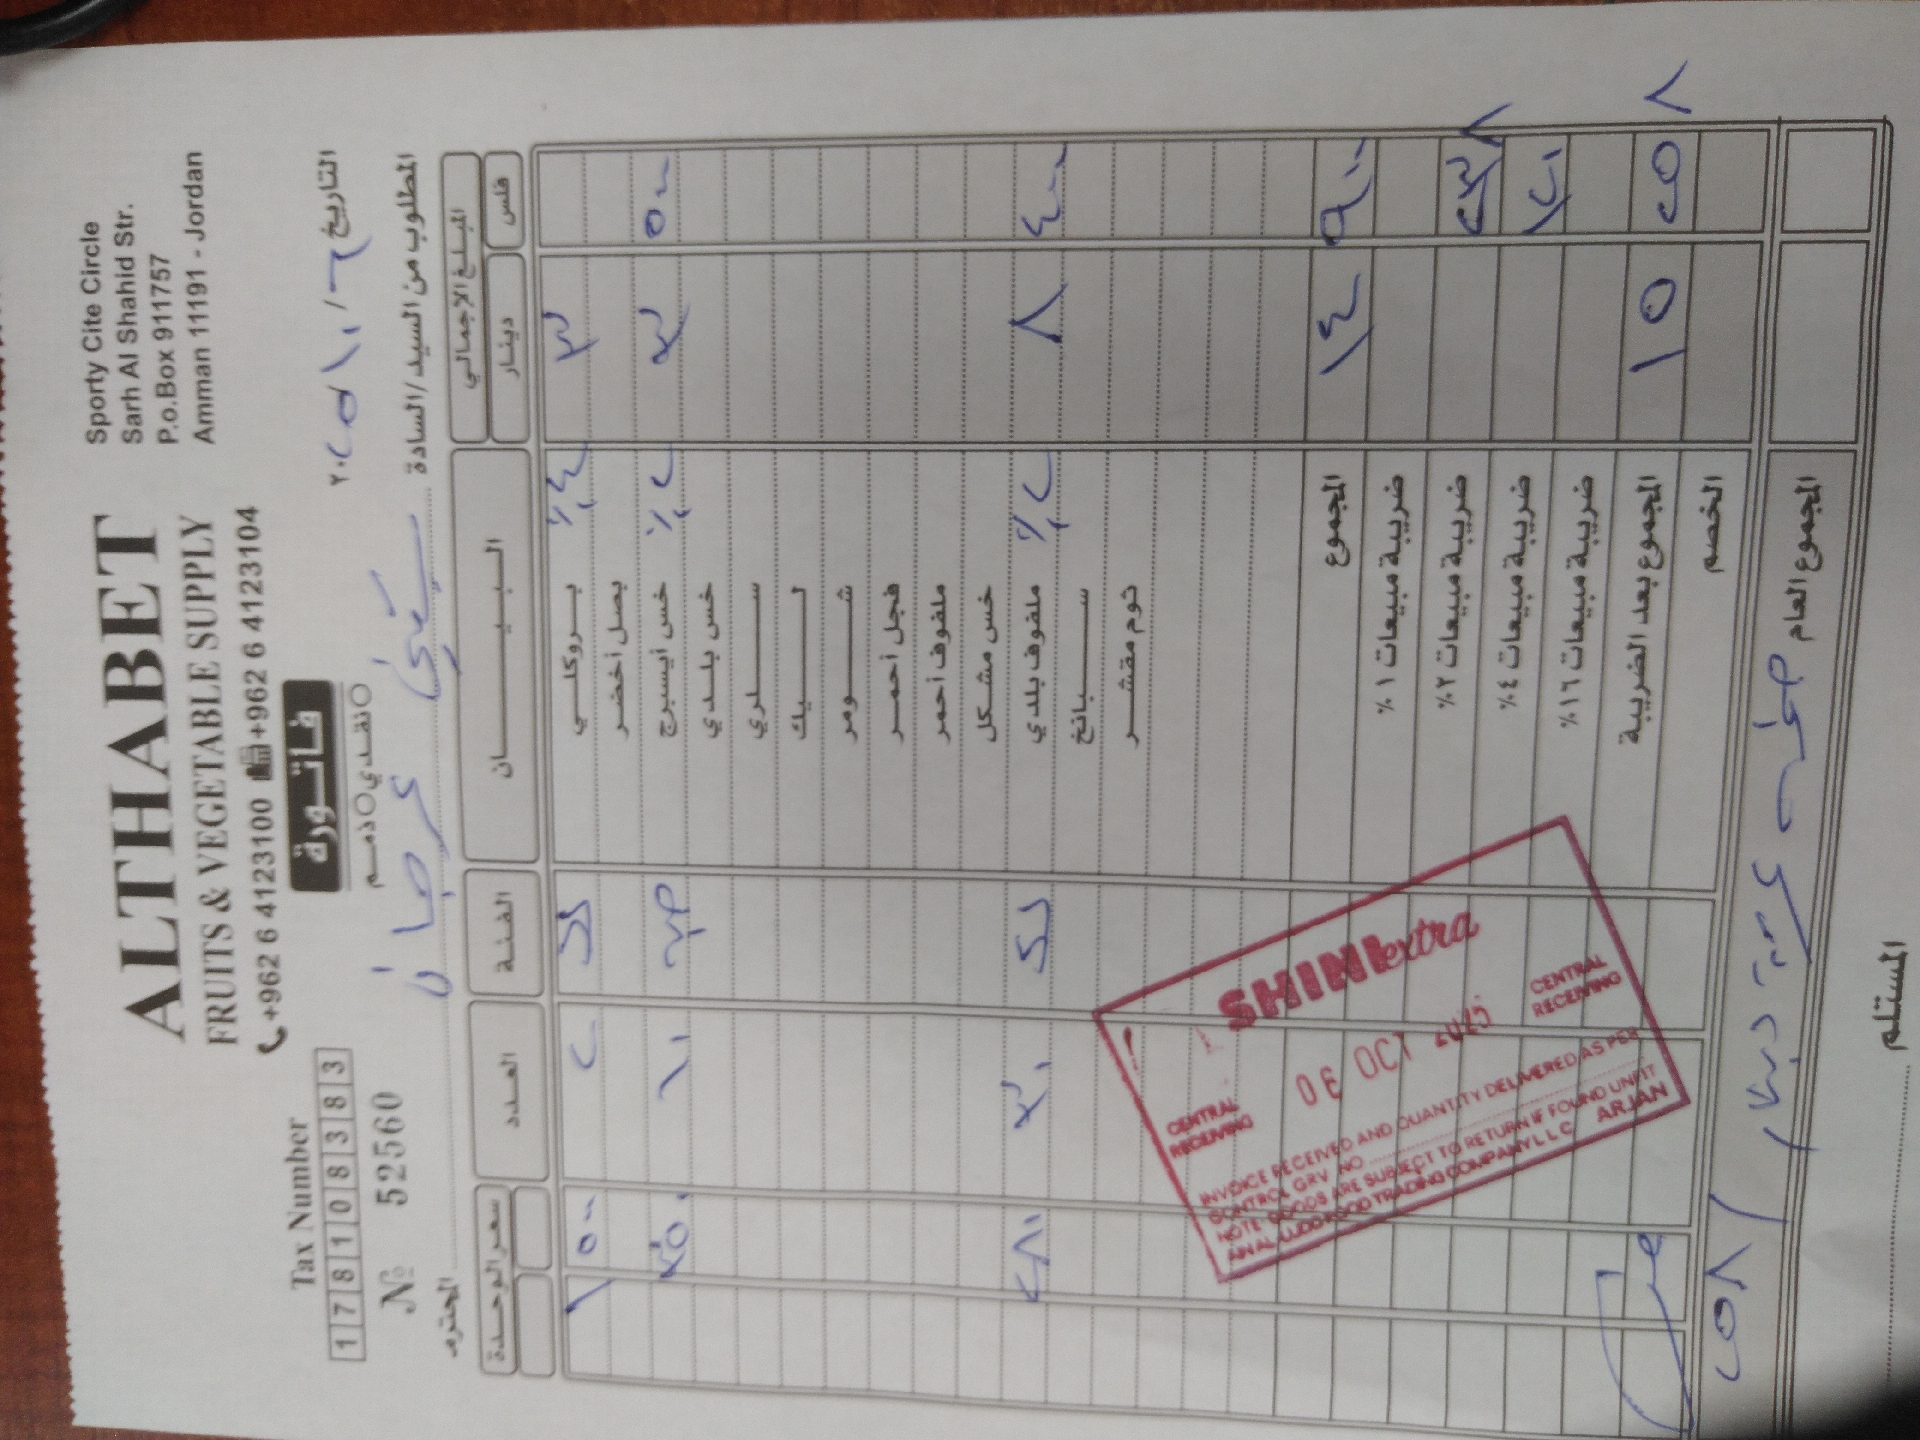 ALTHABET
FRUITS & VEGETABLE SUPPLY
+962 6 4123100 +962 6 4123104
Sporty Cite Circle
Sarh Al Shahid Str.
P.o.Box 911757
Amman 11191 - Jordan
Tax Number
1 7 8 1 0 8 3 8 3
№ 52560
فاتورة
نقدي ذمم
التاريخ ٦ / ١٠ / ٢٠٢٥
المطلوب من السيد / السادة عرجان المحترم
المبلغ الإجمالي
دينار فلس
البيان
الفئة
العدد
سعر الوحدة
٣ بروكلي ٪٤ ٢ ١ ٥٠٠
بصل أخضر
٣ ٥٠٠ خس أيسبرج ٪٢ ١٠ ٣٥٠
خس بلدي
سلري
ليك
شومر
فجل أحمر
ملفوف أحمر
خس مشكل
٨ ٤٠٠ ملفوف بلدي ٪٢ ٣٠ ٢٨٠
سبانخ
ثوم مقشر
المجموع ١٤ ٩٠٠
ضريبة مبيعات ١٪
ضريبة مبيعات ٢٪ ٢٣٨
ضريبة مبيعات ٤٪ ١٢٠
ضريبة مبيعات ١٦٪
المجموع بعد الضريبة ١٥ ٢٥٨
الخصم
المجموع العام
٢٥٨ /
المستلم
SHINI extra
CENTRAL RECEIVING
06 OCT 2025
CENTRAL RECEIVING
INVOICE RECEIVED AND QUANTITY DELIVERED AS PER
CONTROL GRV NO
NOTE GOODS ARE SUBJECT TO RETURN IF FOUND UNFIT
FOOD TRADING COMPANY L L C ARJAN